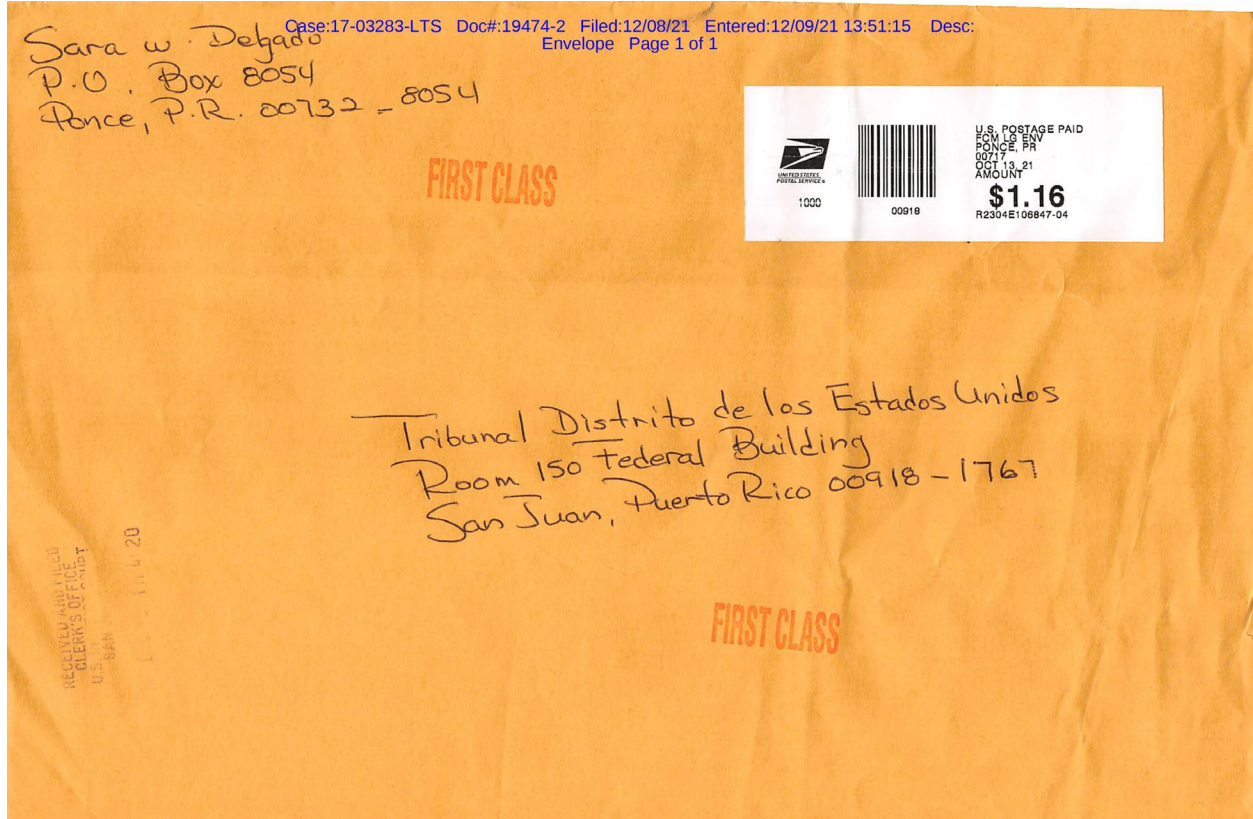 Case:17-03283-LTS Doc#:19474-2 Filed:12/08/21 Entered:12/09/21 13:51:15 Desc:
Envelope Page 1 of 1
Sara W. Delgado
P.O. Box 8054
Ponce, P.R. 00732-8054
FIRST CLASS
UNITED STATES
POSTAL SERVICE®
1000
00918
U.S. POSTAGE PAID
FCM LG ENV
PONCE, PR
00717
OCT 13, 21
AMOUNT
$1.16
R2304E106847-04
Tribunal Distrito de los Estados Unidos
Room 150 Federal Building
San Juan, Puerto Rico 00918-1767
RECEIVED AND FILED
CLERK'S OFFICE
U.S. COURT
SAN
4 20
FIRST CLASS